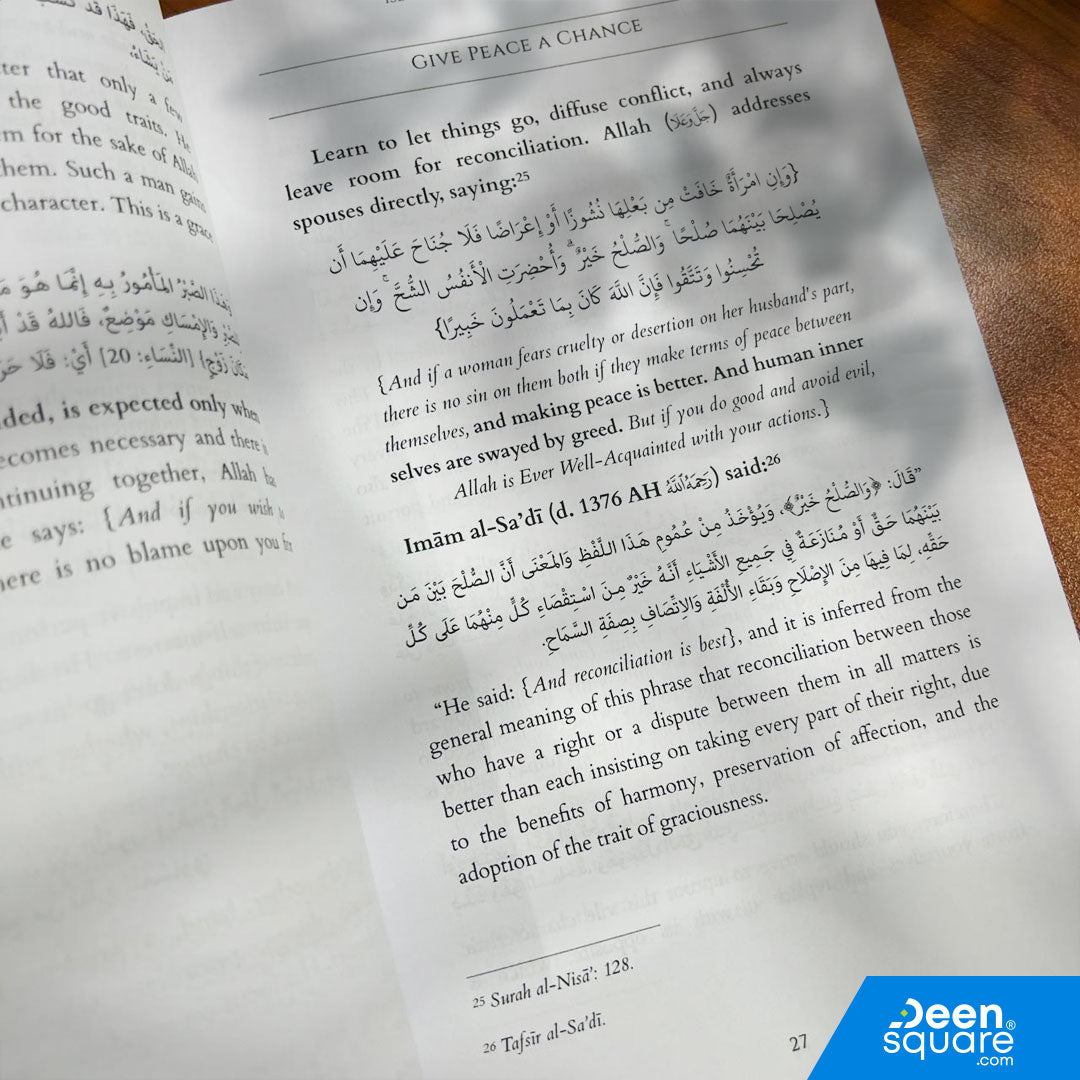 يَشَاءُ
ter that only a few
the good traits. He
em for the sake of Allah
them. Such a man gains
character. This is a grace
ded, is expected only when
ecomes necessary and there is
ntinuing together, Allah has
e says: {And if you wish to
here is no blame upon you for
GIVE PEACE A CHANCE
Learn to let things go, diffuse conflict, and always
leave room for reconciliation. Allah (جَلَّ وَعَلَا) addresses
spouses directly, saying:25
{وَإِنِ امْرَأَةٌ خَافَتْ مِن بَعْلِهَا نُشُوزًا أَوْ إِعْرَاضًا فَلَا جُنَاحَ عَلَيْهِمَا أَن
يُصْلِحَا بَيْنَهُمَا صُلْحًا ۚ وَالصُّلْحُ خَيْرٌ ۗ وَأُحْضِرَتِ الْأَنفُسُ الشُّحَّ ۚ وَإِن
تُحْسِنُوا وَتَتَّقُوا فَإِنَّ اللَّهَ كَانَ بِمَا تَعْمَلُونَ خَبِيرًا}
{And if a woman fears cruelty or desertion on her husband's part,
there is no sin on them both if they make terms of peace between
themselves, and making peace is better. And human inner
selves are swayed by greed. But if you do good and avoid evil,
Allah is Ever Well-Acquainted with your actions.}
Imām al-Sa’dī (d. 1376 AH رَحِمَهُ ٱللَّهُ) said:26
”قَالَ: ﴿وَالصُّلْحُ خَيْرٌ﴾، وَيُؤْخَذُ مِنْ عُمُومِ هَذَا اللَّفْظِ وَالمَعْنَى أَنَّ الصُّلْحَ بَيْنَ مَن
بَيْنَهُمَا حَقٌّ أَوْ مُنَازَعَةٌ فِي جَمِيعِ الأَشْيَاءِ أَنَّهُ خَيْرٌ مِنَ اسْتِقْصَاءِ كُلٍّ مِنْهُمَا عَلَى كُلِّ
حَقِّهِ، لِمَا فِيهَا مِنَ الإِصْلَاحِ وَبَقَاءِ الأُلْفَةِ وَالِاتِّصَافِ بِصِفَةِ السَّمَاحِ.
“He said: {And reconciliation is best}, and it is inferred from the
general meaning of this phrase that reconciliation between those
who have a right or a dispute between them in all matters is
better than each insisting on taking every part of their right, due
to the benefits of harmony, preservation of affection, and the
adoption of the trait of graciousness.
25 Surah al-Nisā’: 128.
26 Tafsīr al-Sa’dī.
27
Deen
square®
.com